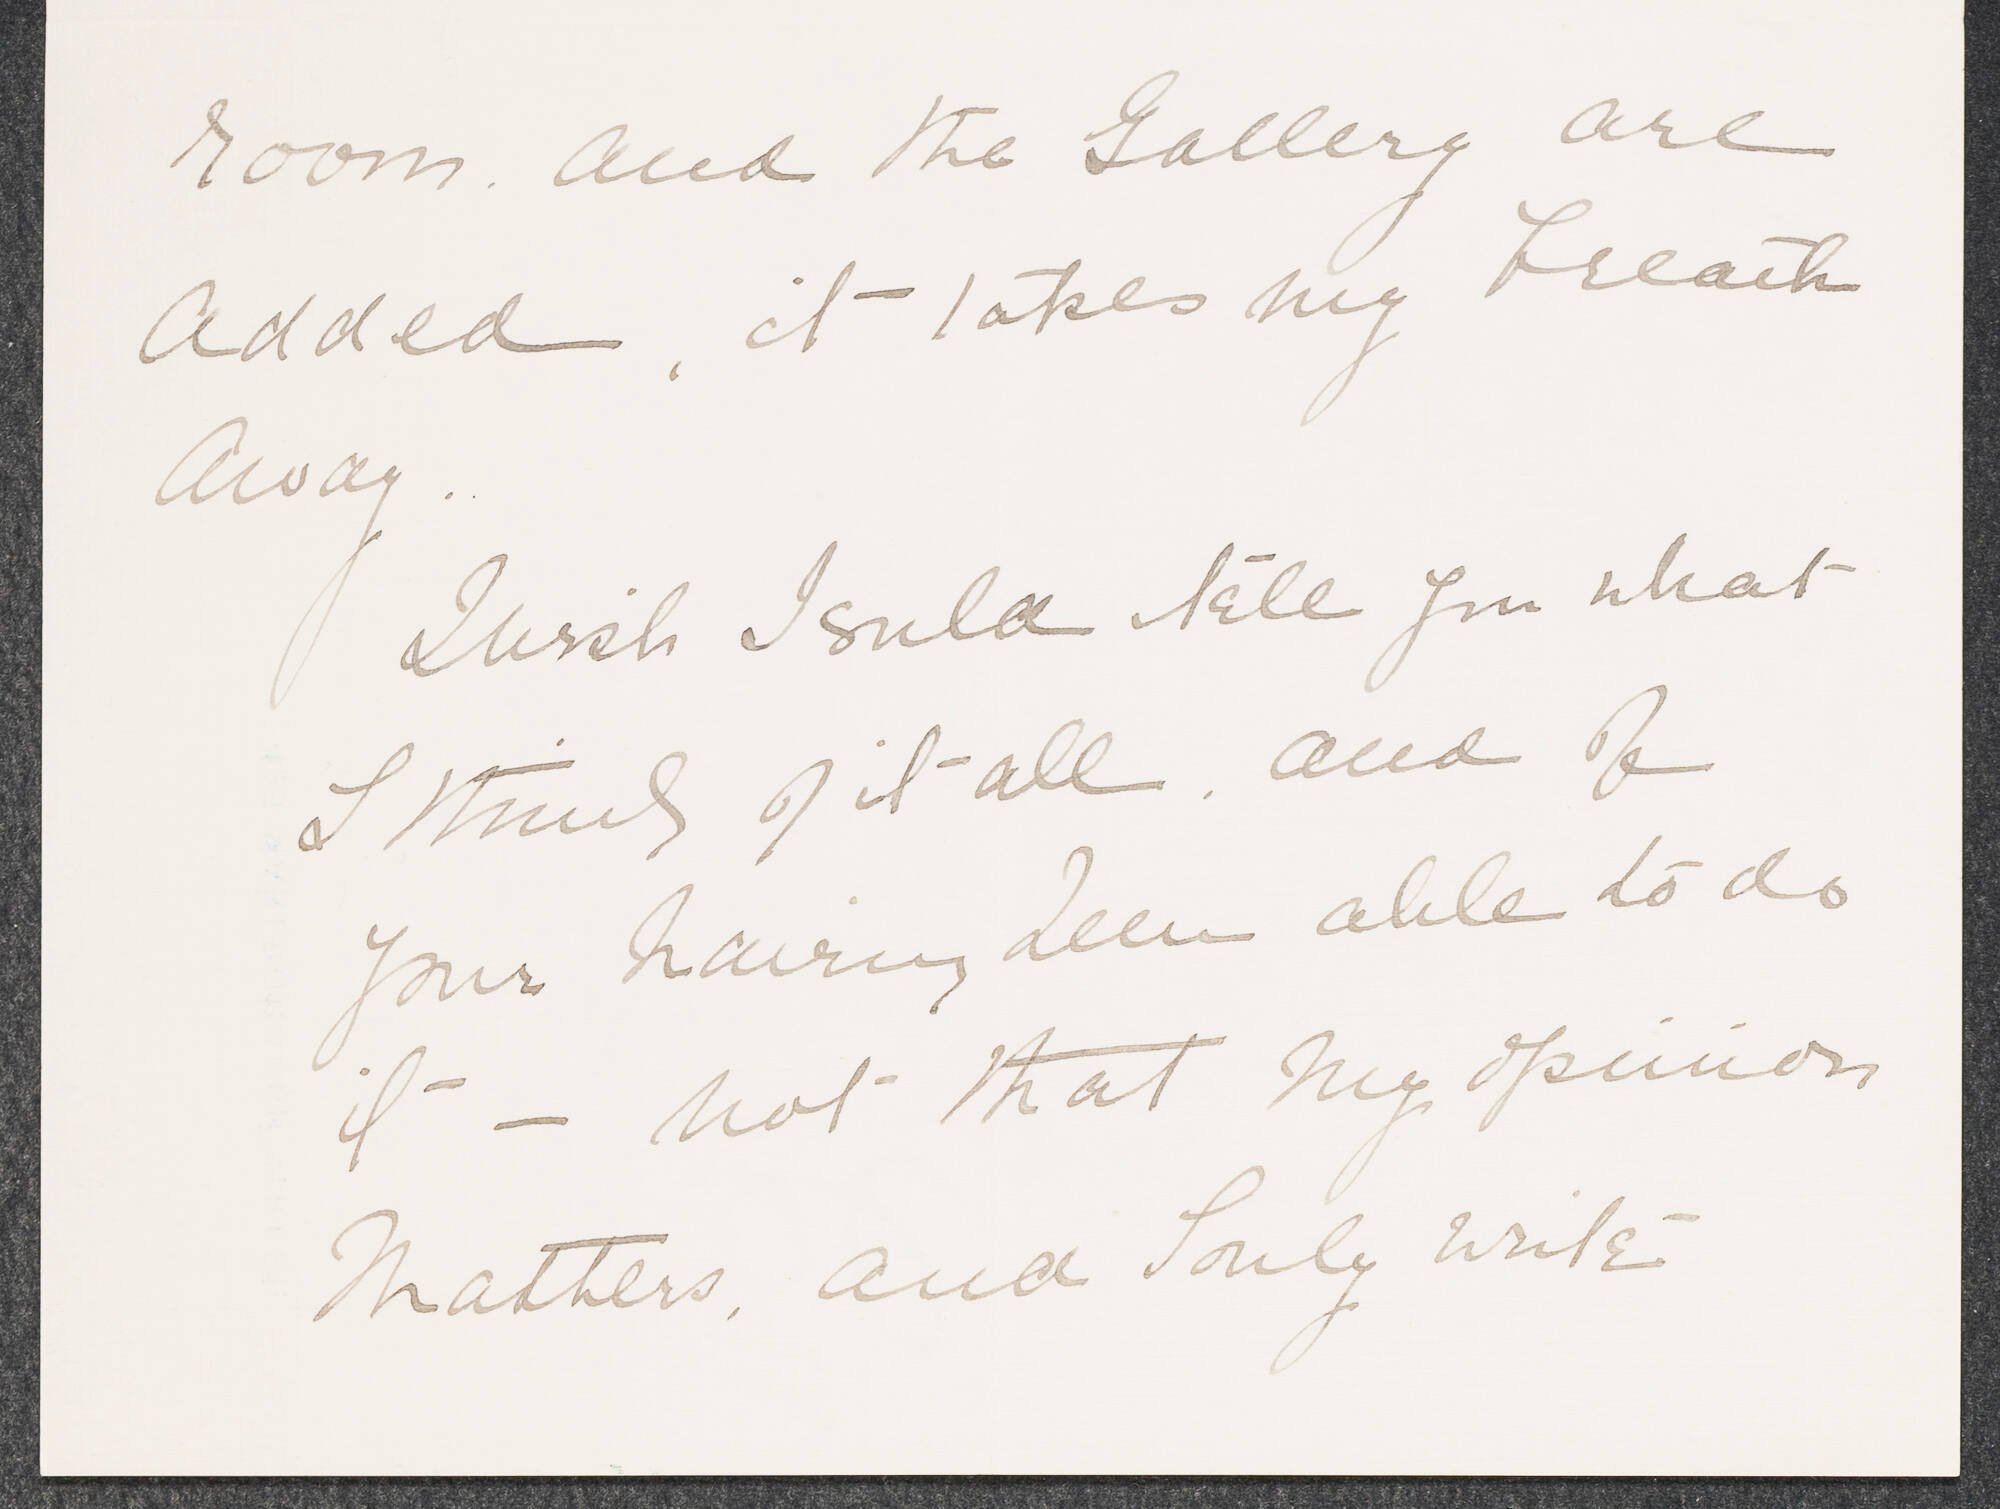 room. and the Gallery are
added, it takes my breath
away..
I wish I could tell you what
I think of it all, and of
your having been able to do
it - not that my opinion
matters, and I only write